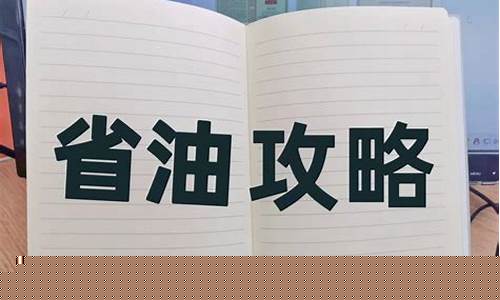 省油攻略